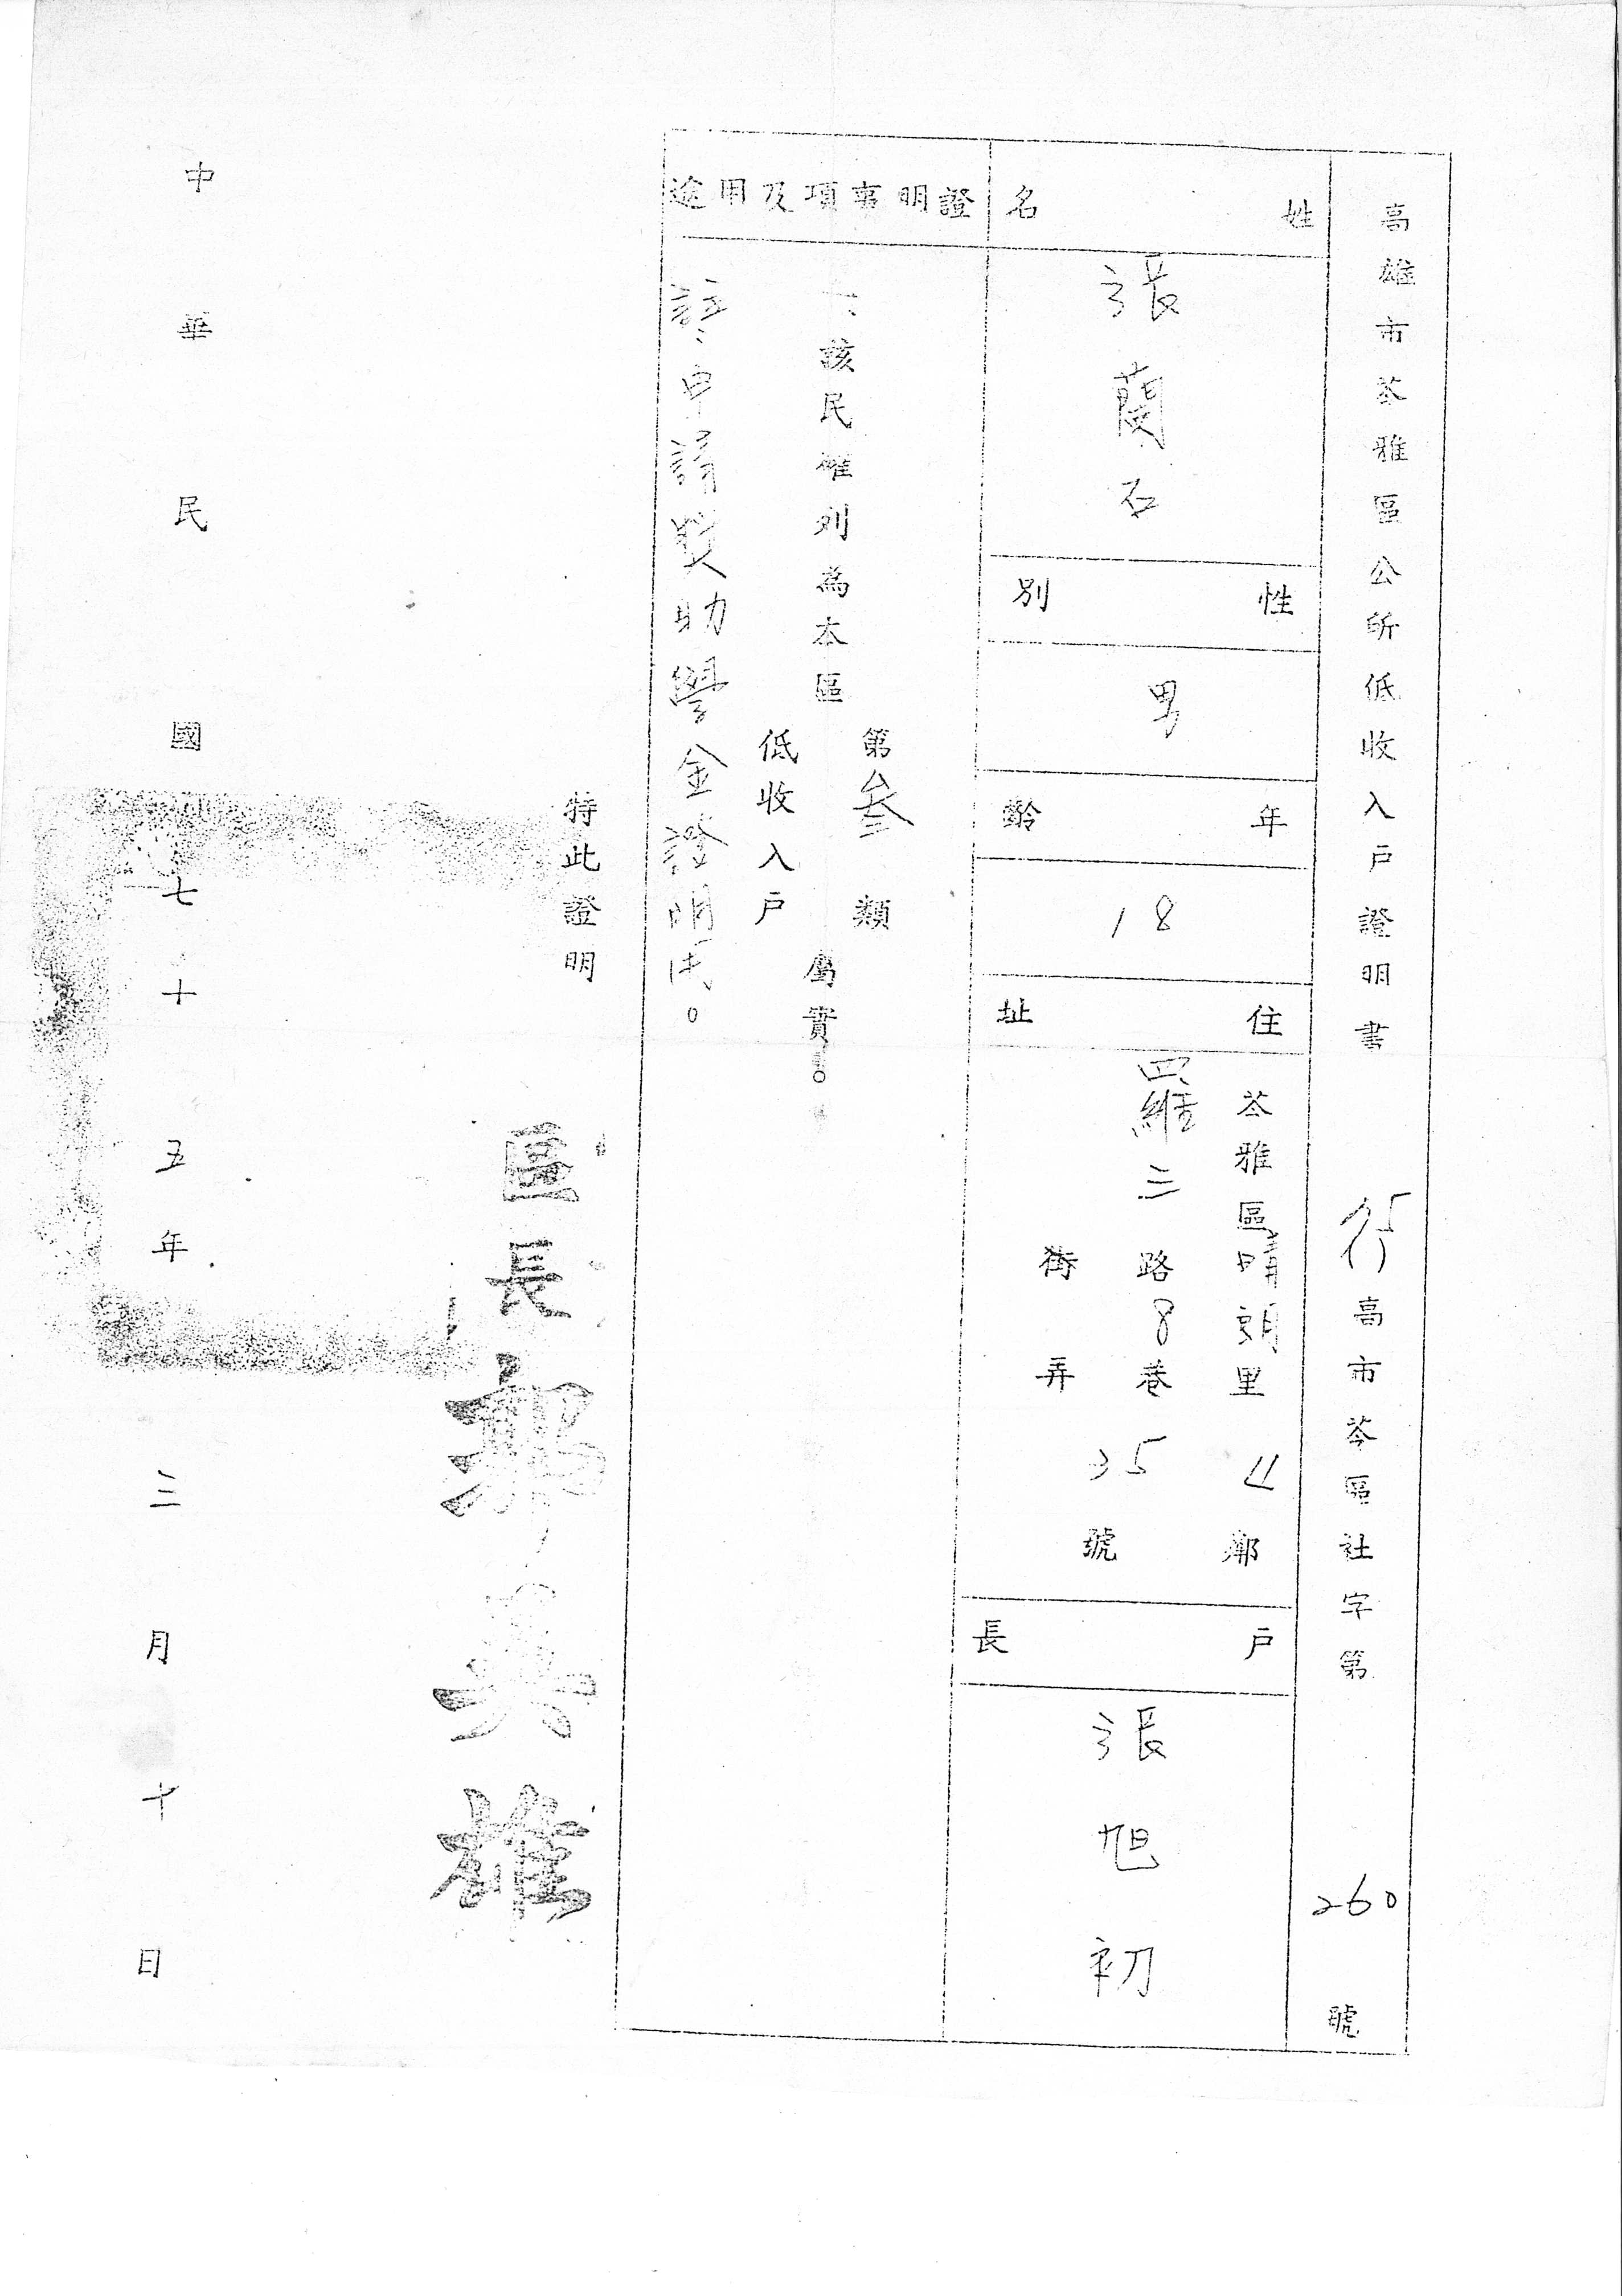 高雄市苓雅區公所低收入戶證明書 75 高市苓區社字第 260 號
姓名
張蘭石
性別
男
年齡
18
住址
苓雅區晴朗里 11 鄰
四維三路8巷
街弄
35號
戶長
張旭初
證明事項及用途
一、該民確列為本區第叁類低收入戶屬實。
註:申請獎助學金證明用。
特此證明
區長 雄
中華民國七十五年三月十日